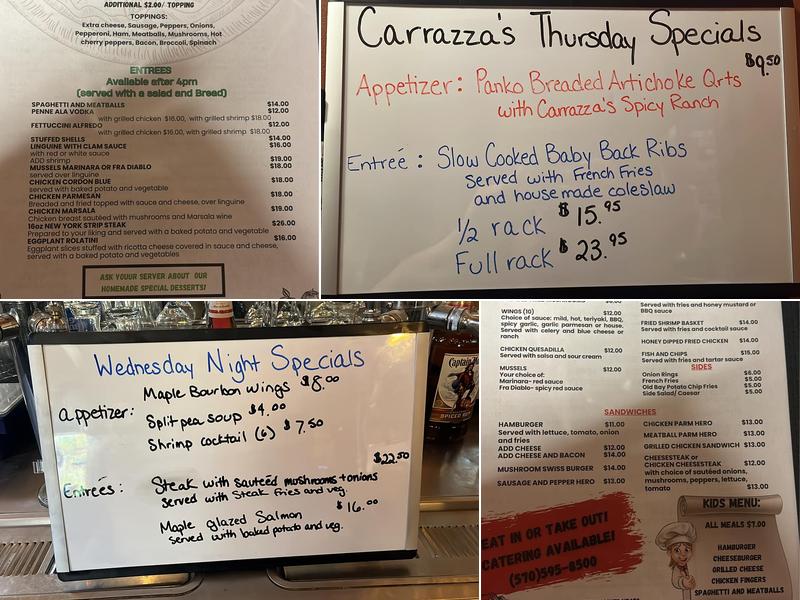 ADDITIONAL $2.00/ TOPPING
TOPPINGS:
Extra cheese, Sausage, Peppers, Onions,
Pepperoni, Ham, Meatballs, Mushrooms, Hot
cherry peppers, Bacon, Broccoli, Spinach
ENTREES
Available after 4pm
(served with a salad and Bread)
SPAGHETTI AND MEATBALLS $14.00
PENNE ALA VODKA $12.00
with grilled chicken $16.00, with grilled shrimp $18.00
FETTUCCINI ALFREDO $12.00
with grilled chicken $16.00, with grilled shrimp $18.00
STUFFED SHELLS $14.00
LINGUINE WITH CLAM SAUCE $16.00
with red or white sauce
ADD shrimp $19.00
MUSSELS MARINARA OR FRA DIABLO $18.00
served over linguine
CHICKEN CORDON BLUE $18.00
served with baked potato and vegetable
CHICKEN PARMESAN $18.00
Breaded and fried topped with sauce and cheese, over linguine
CHICKEN MARSALA $19.00
Chicken breast sautéed with mushrooms and Marsala wine
16oz NEW YORK STRIP STEAK $26.00
Prepared to your liking and served with a baked potato and vegetable
EGGPLANT ROLATINI $16.00
Eggplant slices stuffed with ricotta cheese covered in sauce and cheese,
served with a baked potato and vegetables
ASK YOUR SERVER ABOUT OUR
HOMEMADE SPECIAL DESSERTS!
Carrazza's Thursday Specials
$9.50
Appetizer: Panko Breaded Artichoke Qrts
with Carrazza's Spicy Ranch
Entreé: Slow Cooked Baby Back Ribs
served with French Fries
and housemade coleslaw
1/2 rack $15.95
Full rack $23.95
Wednesday Night Specials
Maple Bourbon wings $8.00
appetizer: Split pea soup $4.00
Shrimp cocktail (6) $7.50
$22.50
Entreés: Steak with sauteéd mushrooms + onions
served with Steak Fries and veg.
Maple glazed Salmon $16.00
served with baked potato and veg.
Captain
SPICED
WINGS (10) $12.00
Choice of sauce: mild, hot, teriyaki, BBQ,
spicy garlic, garlic parmesan or house.
Served with celery and blue cheese or
ranch
CHICKEN QUESADILLA $12.00
Served with salsa and sour cream
MUSSELS $12.00
Your choice of:
Marinara- red sauce
Fra Diablo- spicy red sauce
Served with fries and honey mustard or
BBQ sauce
FRIED SHRIMP BASKET $14.00
Served with fries and cocktail sauce
HONEY DIPPED FRIED CHICKEN $14.00
FISH AND CHIPS $15.00
Served with fries and tartar sauce
SIDES
Onion Rings $6.00
French Fries $5.00
Old Bay Potato Chip Fries $5.00
Side Salad/ Caesar $5.00
SANDWICHES
HAMBURGER $11.00
Served with lettuce, tomato, onion
and fries
ADD CHEESE $12.00
ADD CHEESE AND BACON $14.00
MUSHROOM SWISS BURGER $14.00
SAUSAGE AND PEPPER HERO $13.00
CHICKEN PARM HERO $13.00
MEATBALL PARM HERO $13.00
GRILLED CHICKEN SANDWICH $13.00
CHEESESTEAK or
CHICKEN CHEESESTEAK $12.00
with choice of sautéed onions,
mushrooms, peppers, lettuce,
tomato $13.00
EAT IN OR TAKE OUT!
CATERING AVAILABLE!
(570)595-8500
KIDS MENU:
ALL MEALS $7.00
HAMBURGER
CHEESEBURGER
GRILLED CHEESE
CHICKEN FINGERS
SPAGHETTI AND MEATBALLS